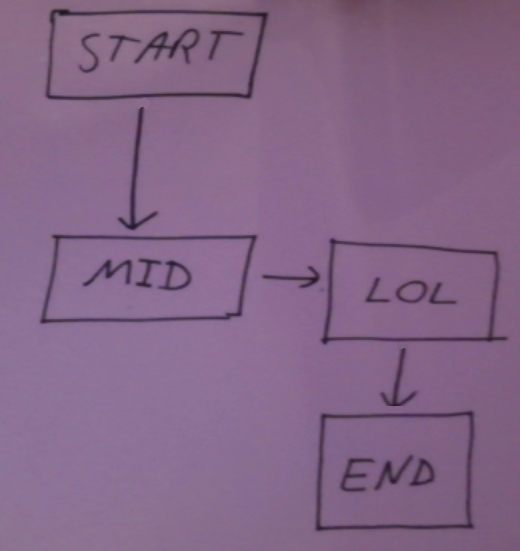 START
MID
LOL
END